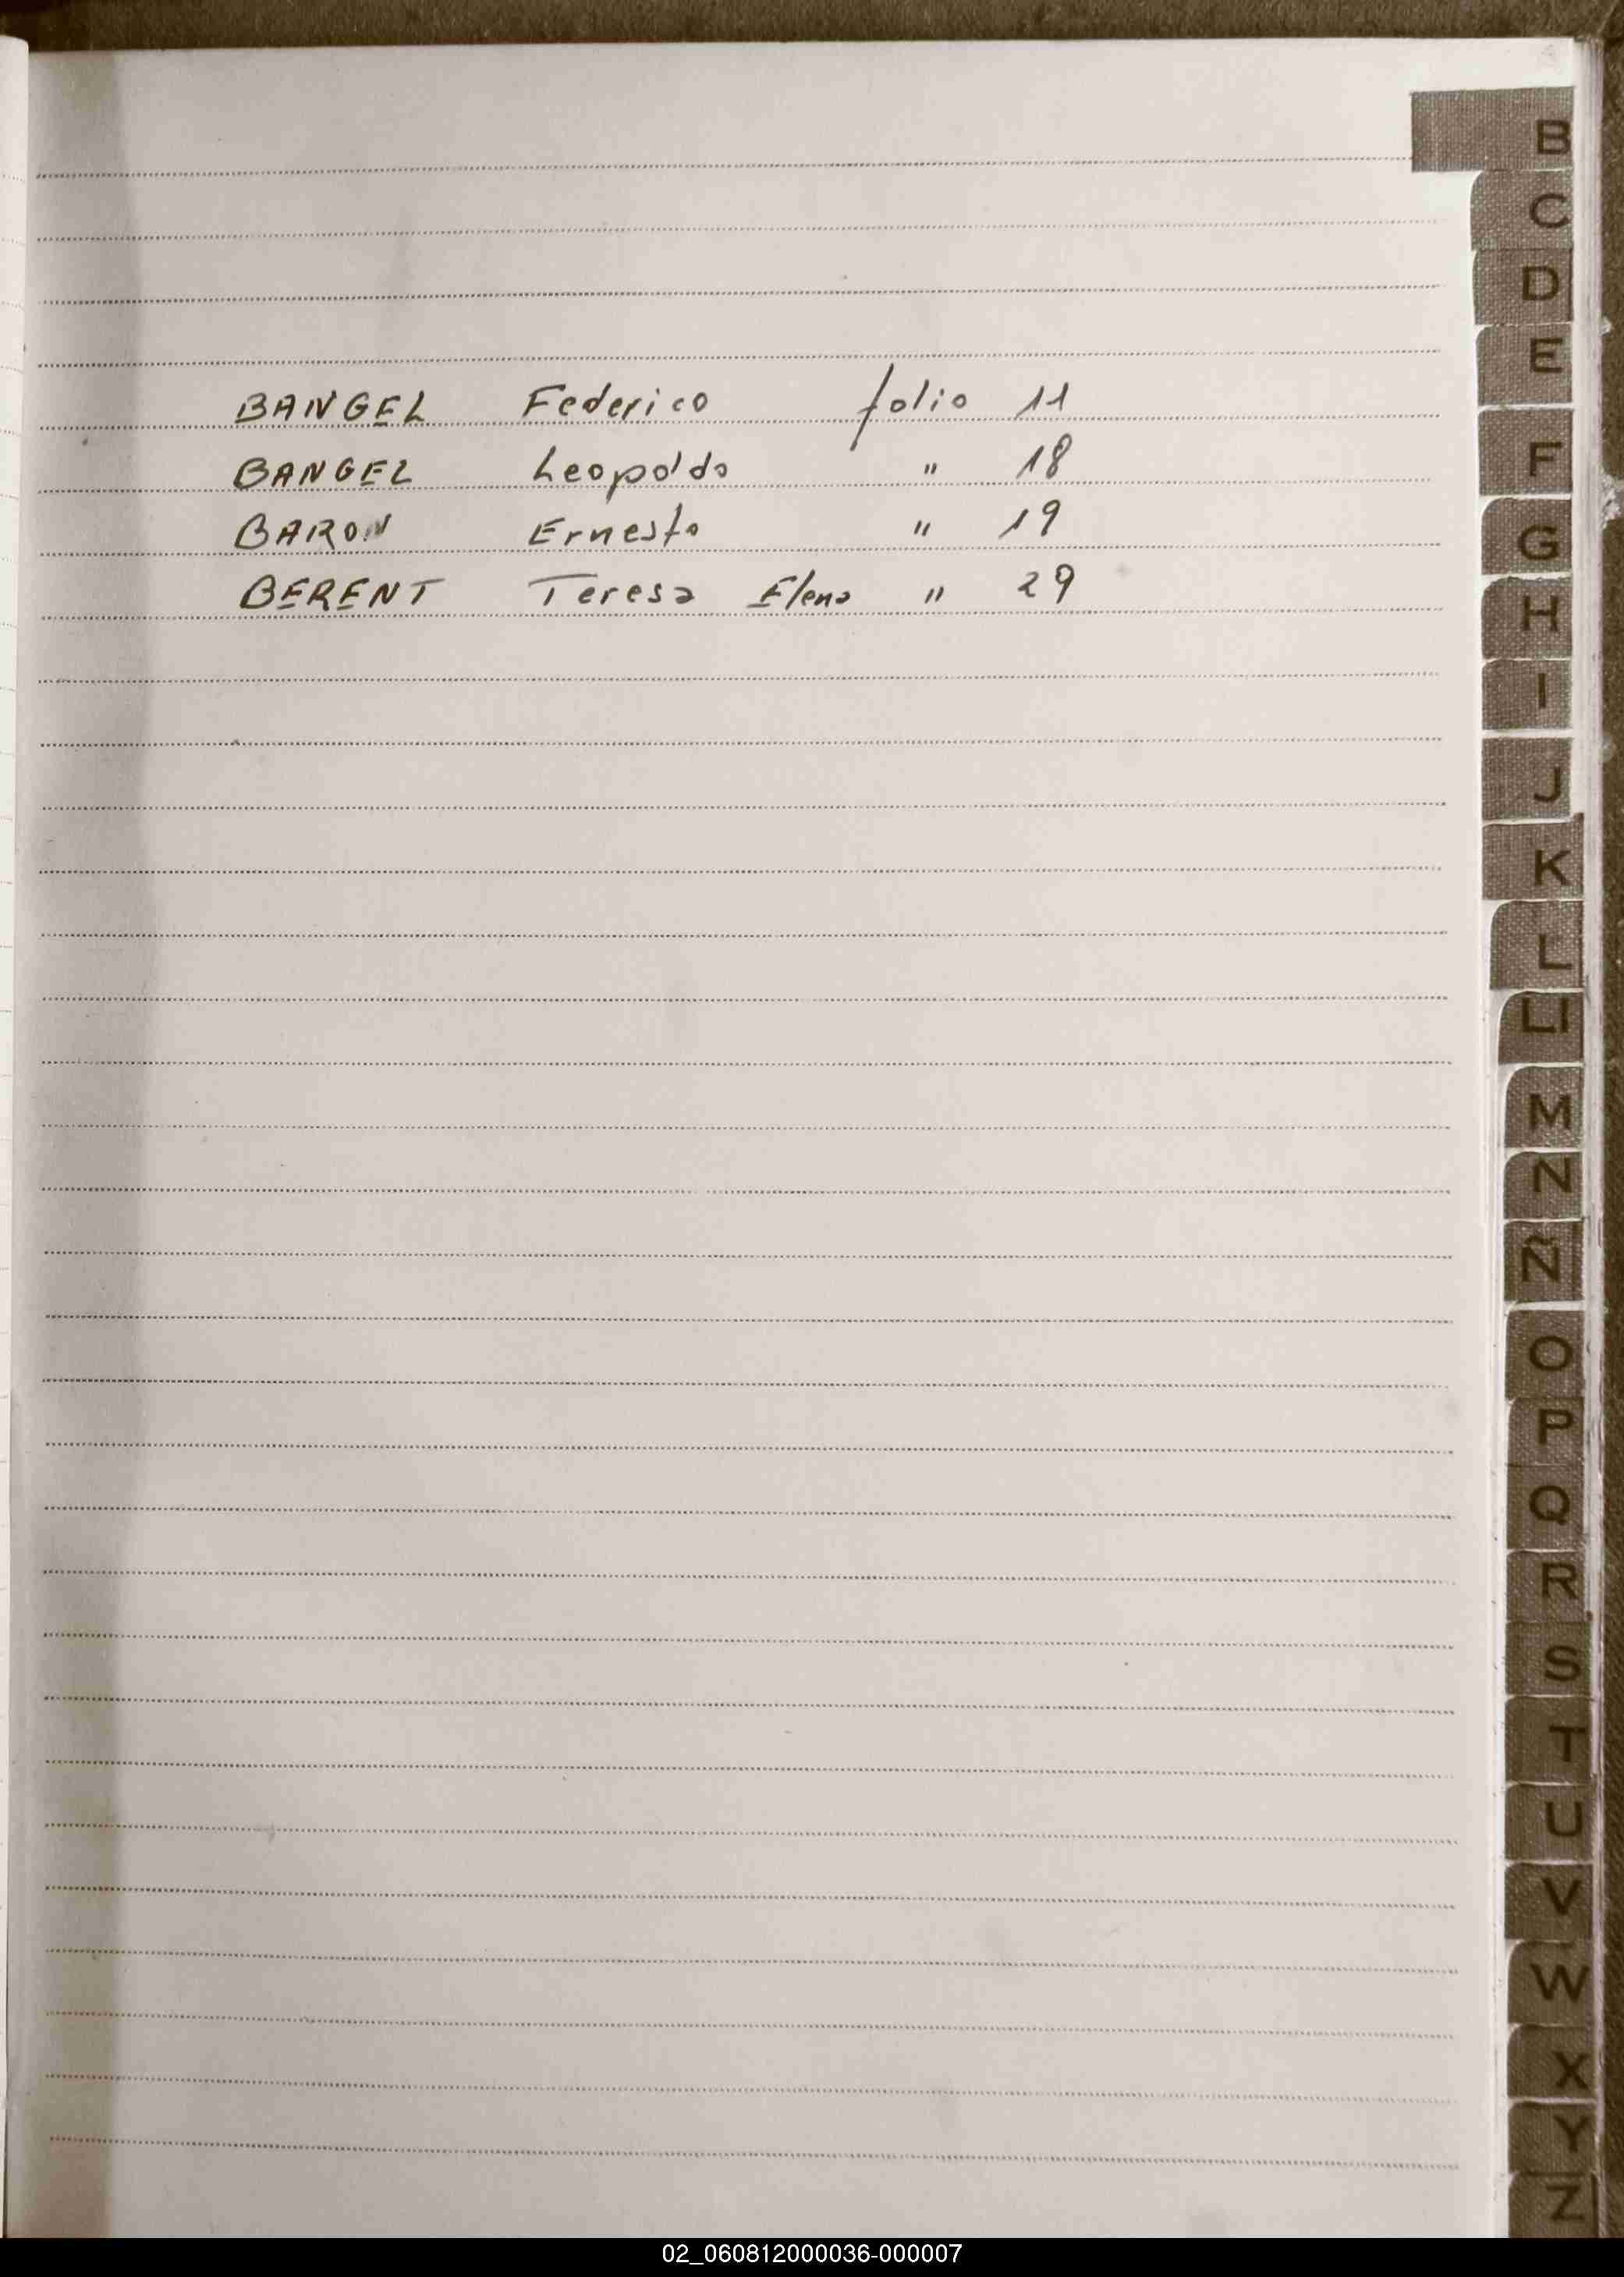 B
C
D
E
BANGEL Federico folio 11
BANGEL Leopoldo " 18
F
BARON Ernesto " 19
G
BERENT Teresa Elena " 29
H
I
J
K
L
Ll
M
N
Ñ
O
P
Q
R
S
T
U
V
W
X
Y
Z
02_060812000036-000007